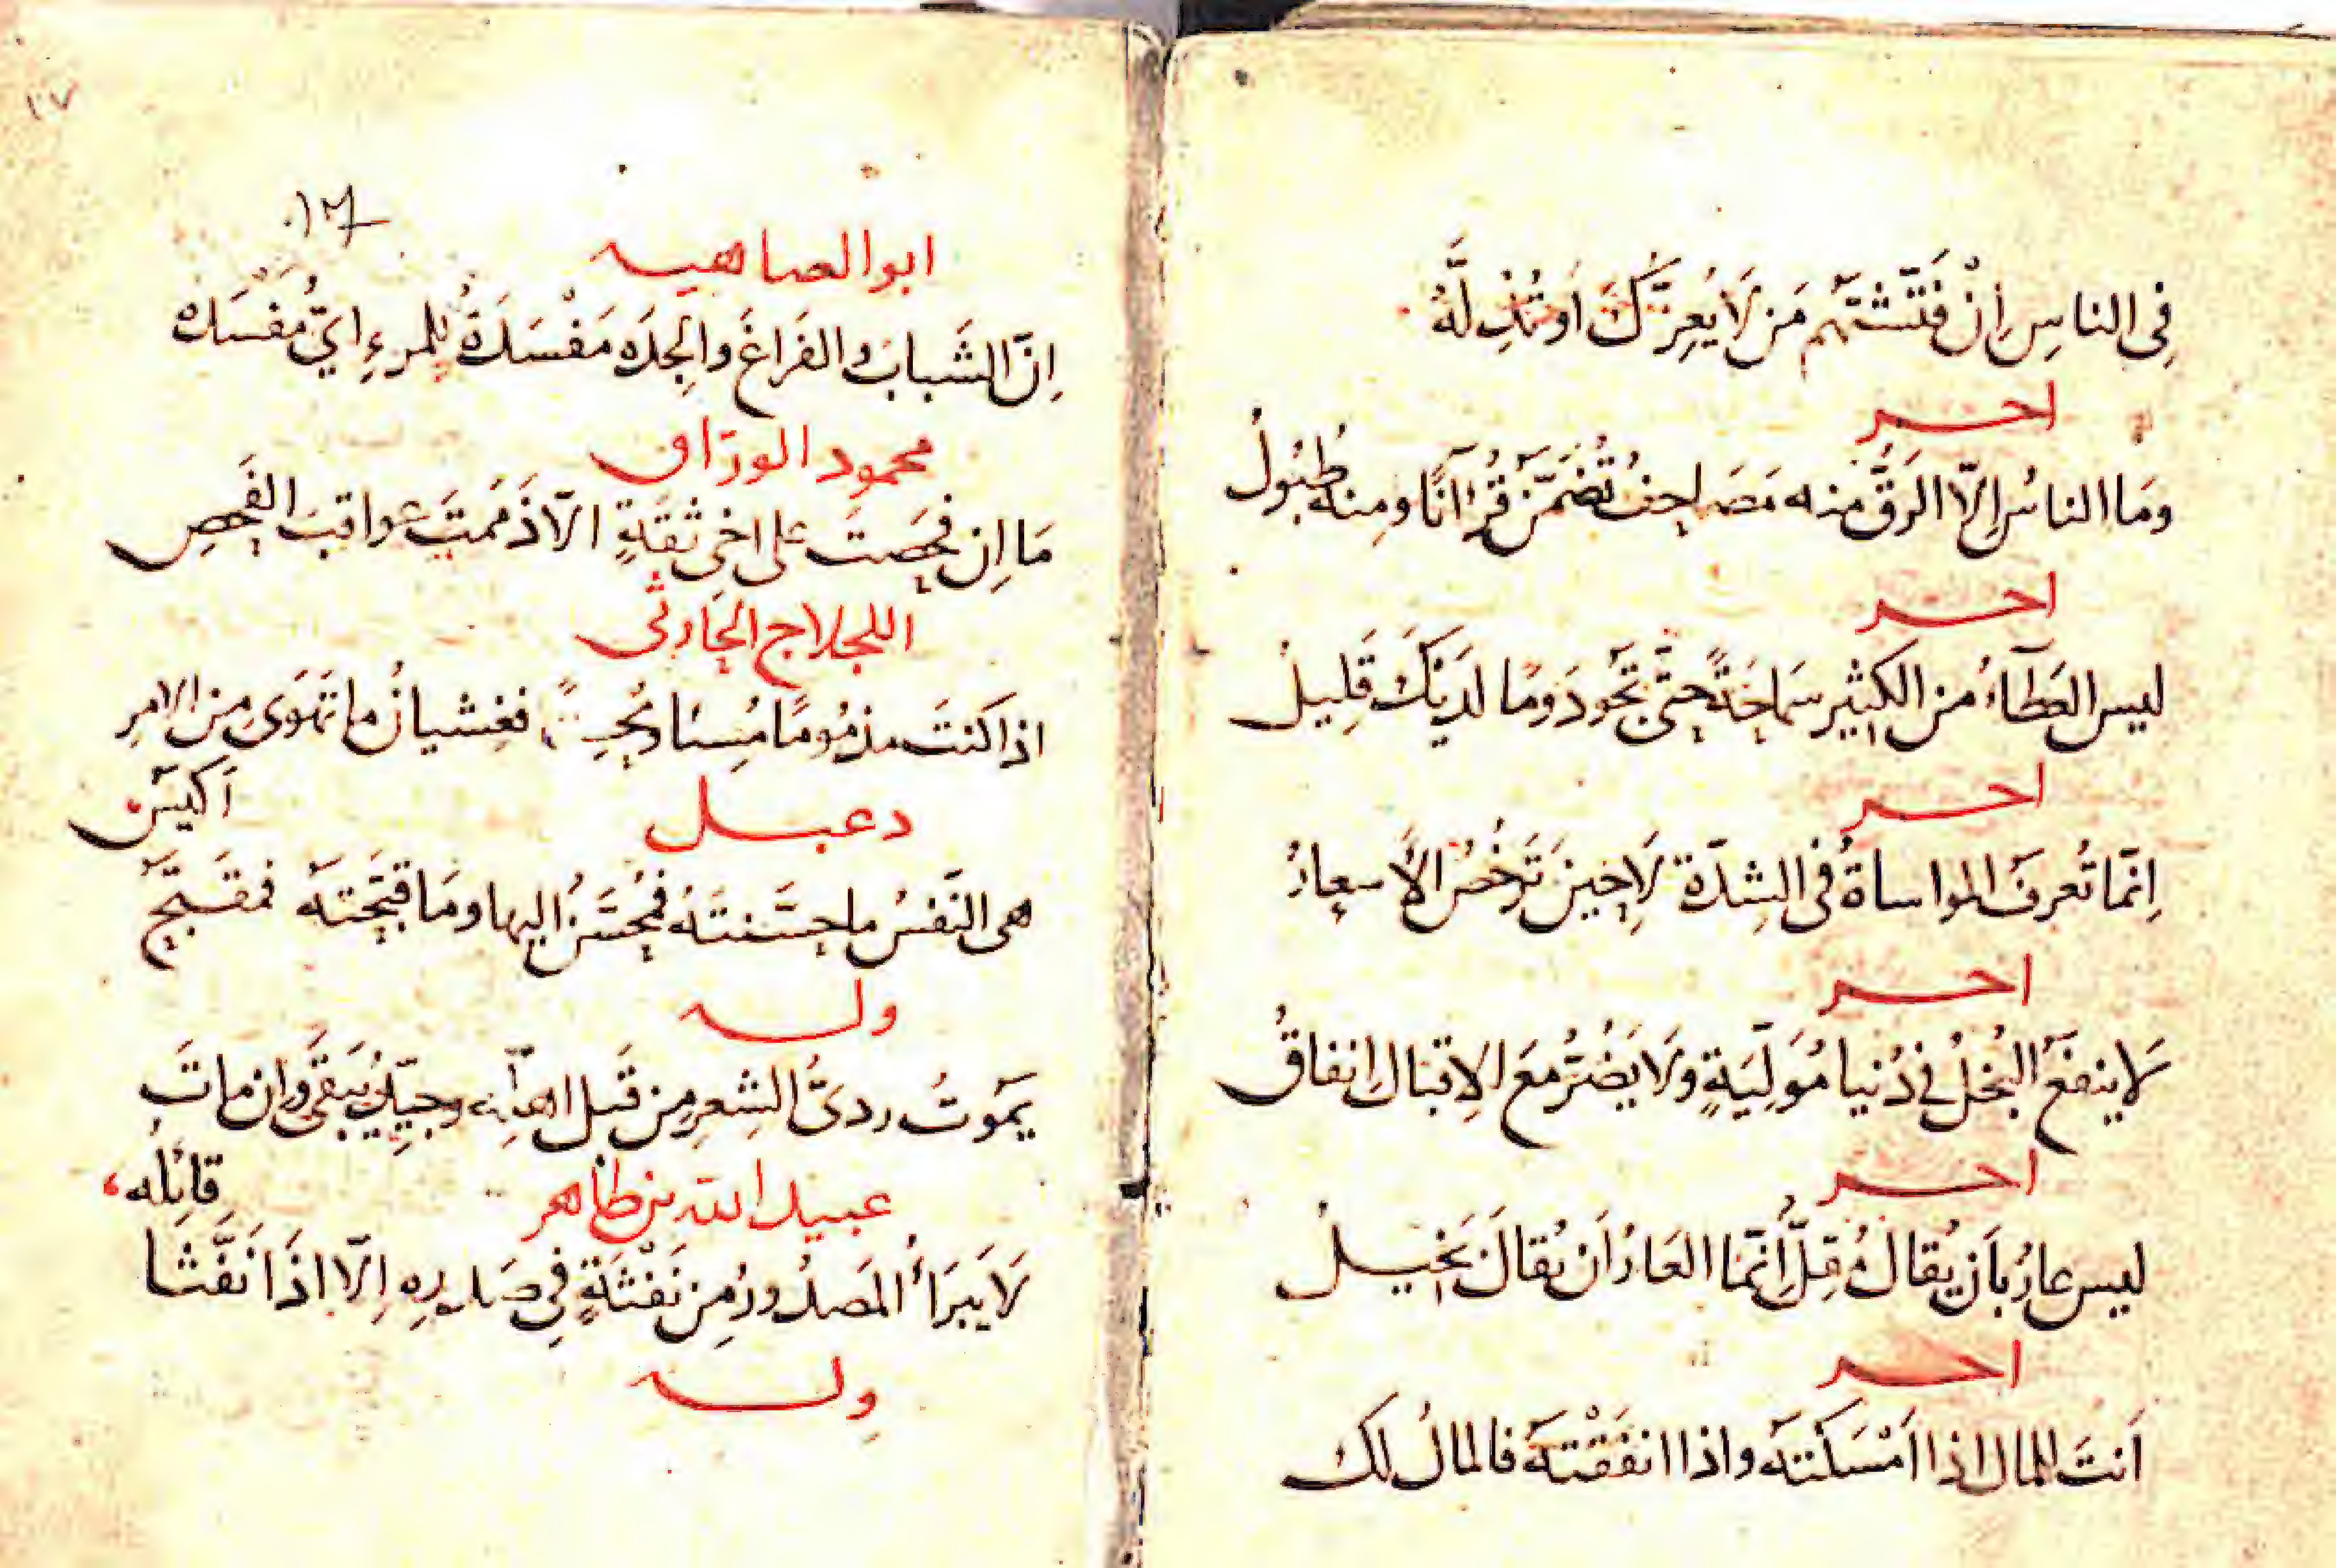 فِى الناسِ اِنْ فَتَّشْتَهُم مَن لَا يُعِزُّكَ اَوْ تُذِلَّهُ
اخر
ومَا الناسُ اِلّا الرَقُّ منه مَصَاحِفُ تُضَمَّنُ قُرْآنًا ومِنهُ طُبُولُ
اخر
ليس العَطَآءُ من الكثِيرِ سَمَاحَةً حتَّى تَجُودَ ومَا لدَيْكَ قَلِيلُ
اخر
اِنّمَا تُعرفُ المواساةُ فى الشِدّة لَا حِينَ تَرْخُصُ الأسعارُ
اخر
لَا ينفعُ البُخلُ فى دُنيا مُوَلِّيَةٍ ولَا يَضُرُّ مَعَ الاِقبالِ اِنفاقُ
اخر
ليس عارٌ بأن يُقالَ مُقِلٌّ اِنّما العَارُ اَنْ يُقالَ بَخِيلُ
اخر
اَنتَ للمال اذا اَمْسَكْتَهُ واذا انفَقْتَهُ فالمالُ لَك
١٧
ابو العتاهيه
اِنَّ الشَبابَ والفَراغَ والجِدَه مَفْسَدَةٌ للمرءِ اىُّ مَفْسَدَه
محمود الورّاق
مَا اِن فحَصتَ على اخِى ثقَةٍ الّا ذَممَتَ عواقبَ الفَحصِ
اللجلاج الحارثى
اذا كنتَ مذمُومًا مُسِيئا ومُحسِنًا فغِشيانُ ما تَهوَى مِن الامرِ
اَكيسُ
دعبل
هى النَفسُ ما حَسَّنتَهُ فمُحَسَّنٌ اليها ومَا قبّحَتهُ فمُقَبَّحُ
وله
يَموتُ ردىُّ الشِعرِ مِن قَبل اهلِهِ وجيّدُهُ يَبقَى وان ماتَ
قائِلُه
عبيد الله بن طاهر
لَا يَبرَأُ المَصدُورُ مِن نَفثَةٍ فى صَدرِهِ اِلّا اذَا نَفَّثَا
وله